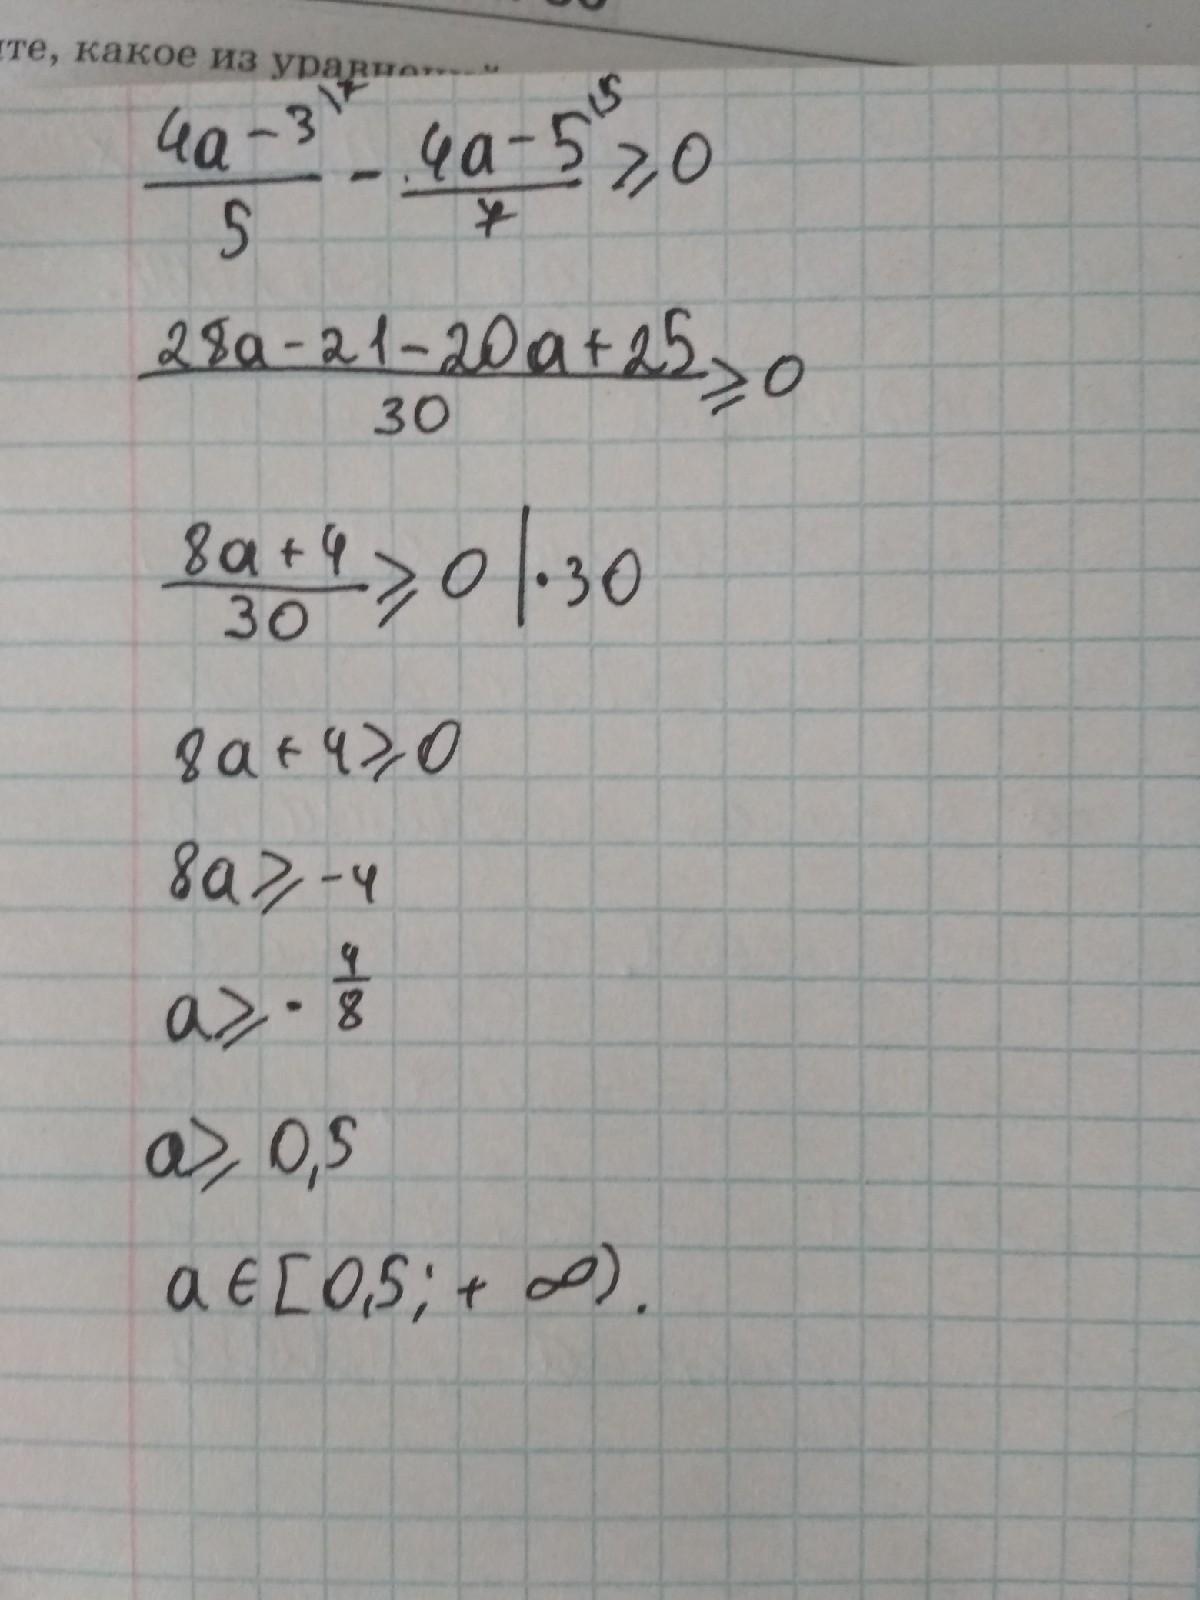 какое из
4a-3\7 / 5 - 4a-5\5 / 7 ≥ 0
28a-21-20a+25 / 30 ≥ 0
8a+4 / 30 ≥ 0 | · 30
8a+4≥0
8a≥-4
a≥ - 4/8
a≥ 0,5
a ∈ [0,5; + ∞).